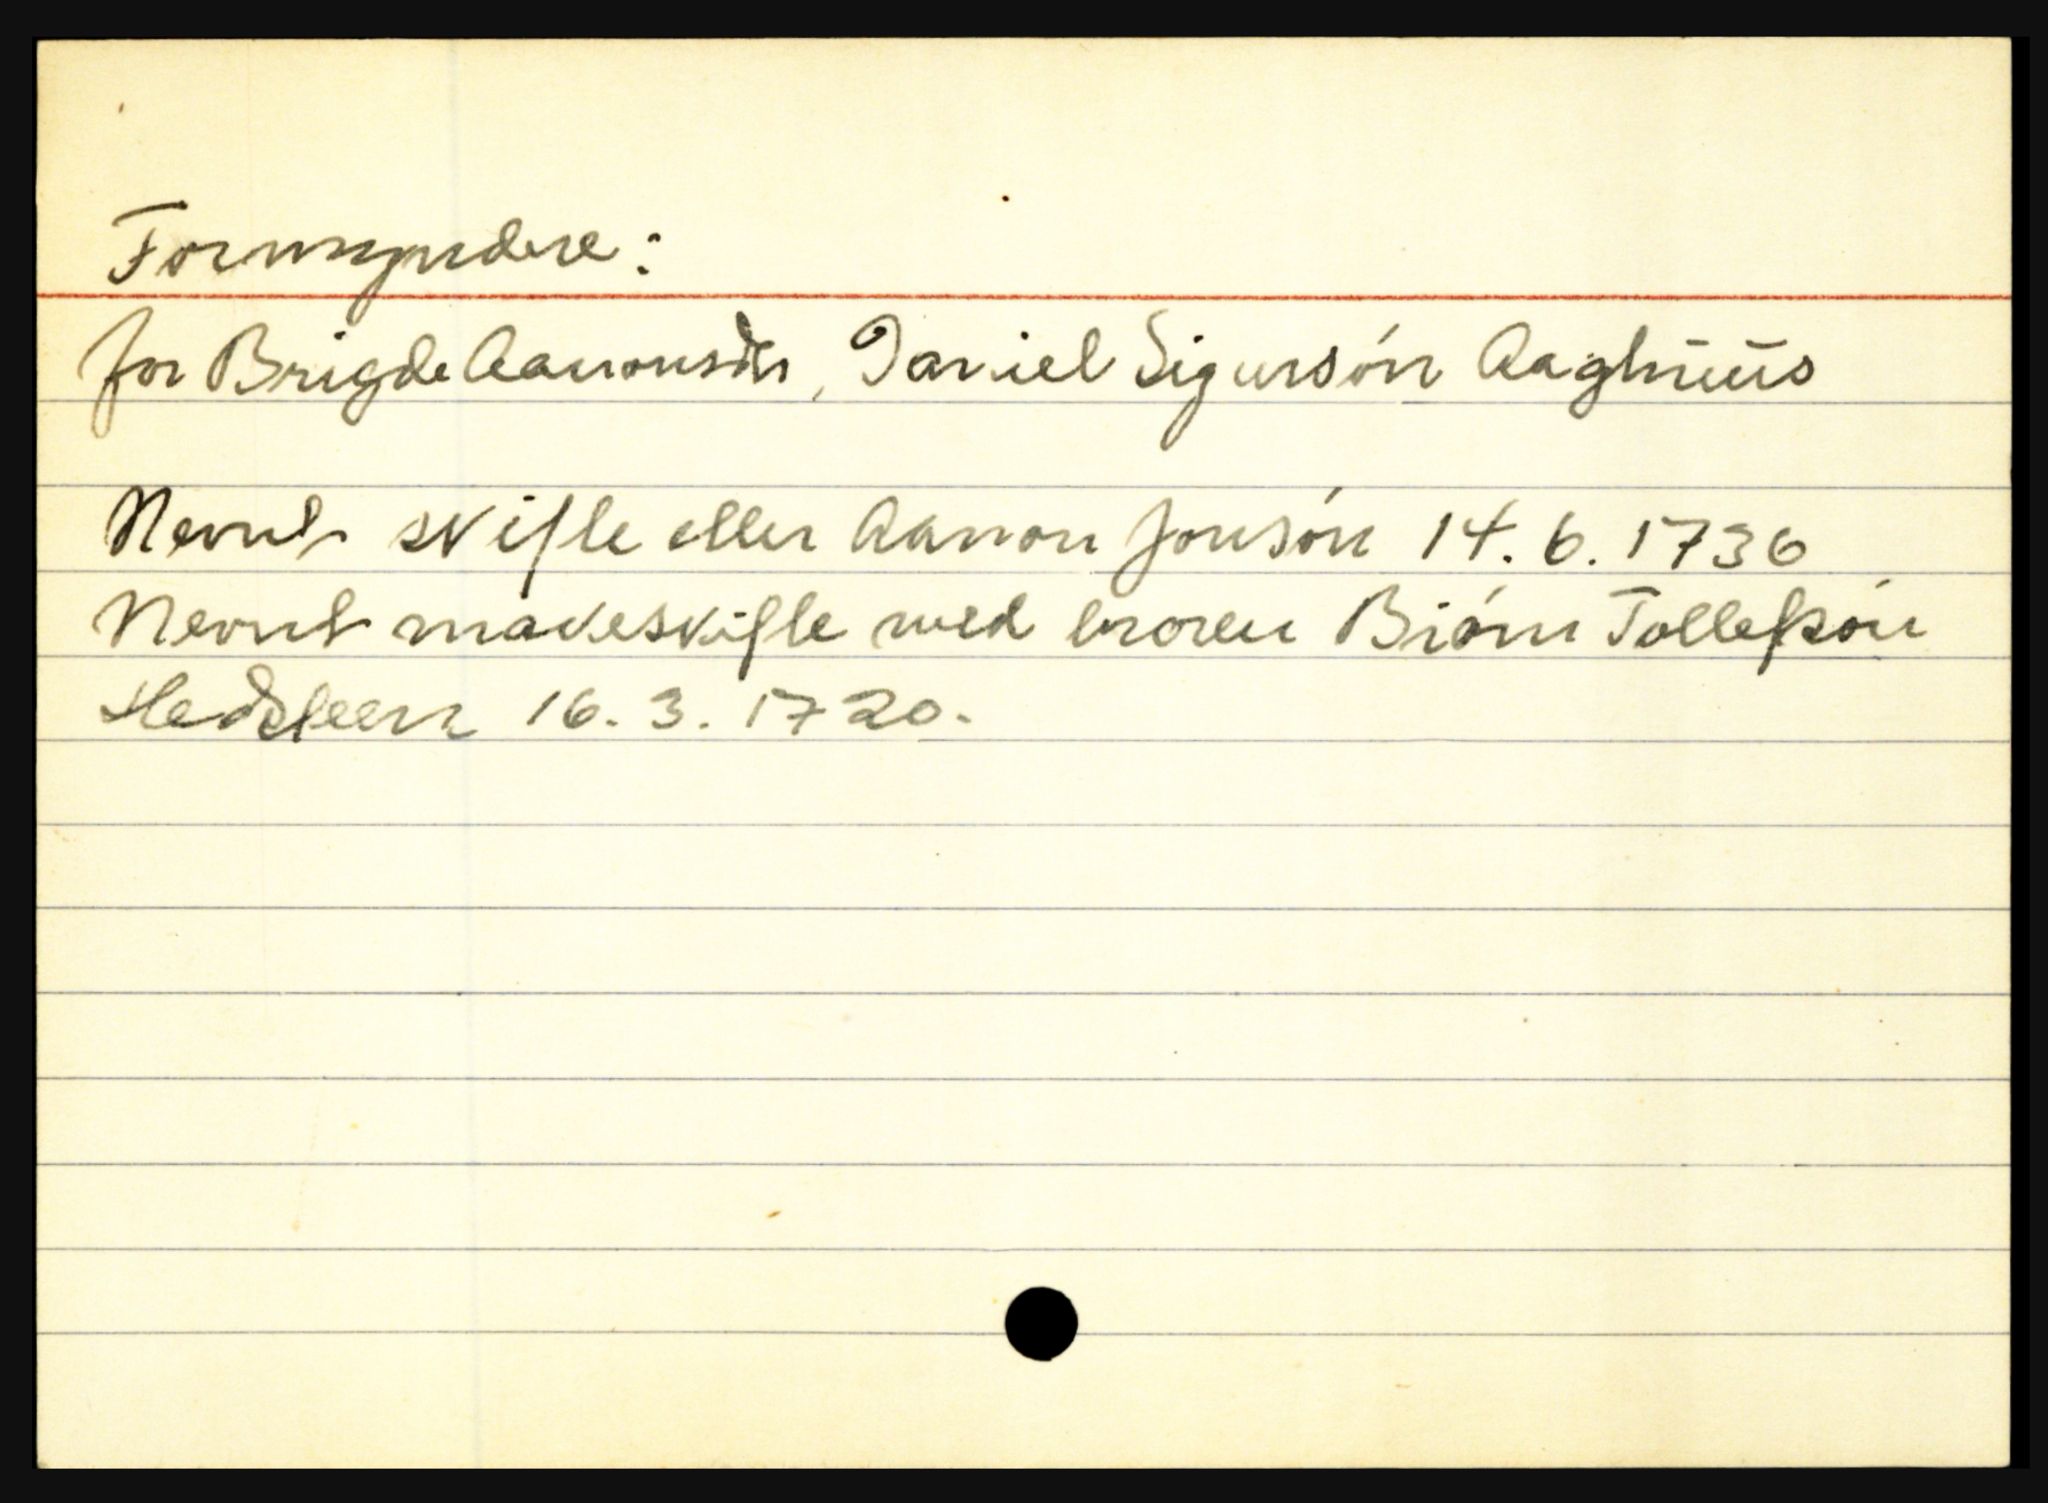 Formyndere:
for Brigde Aanonsdtr, Daniel Sigursøn Aaghuus
Nevnt skifte etter Aanon Jonsøn 14.6.1736
Nevnt makeskifte med broren Biørn Tollefsøn
16.3.1720.